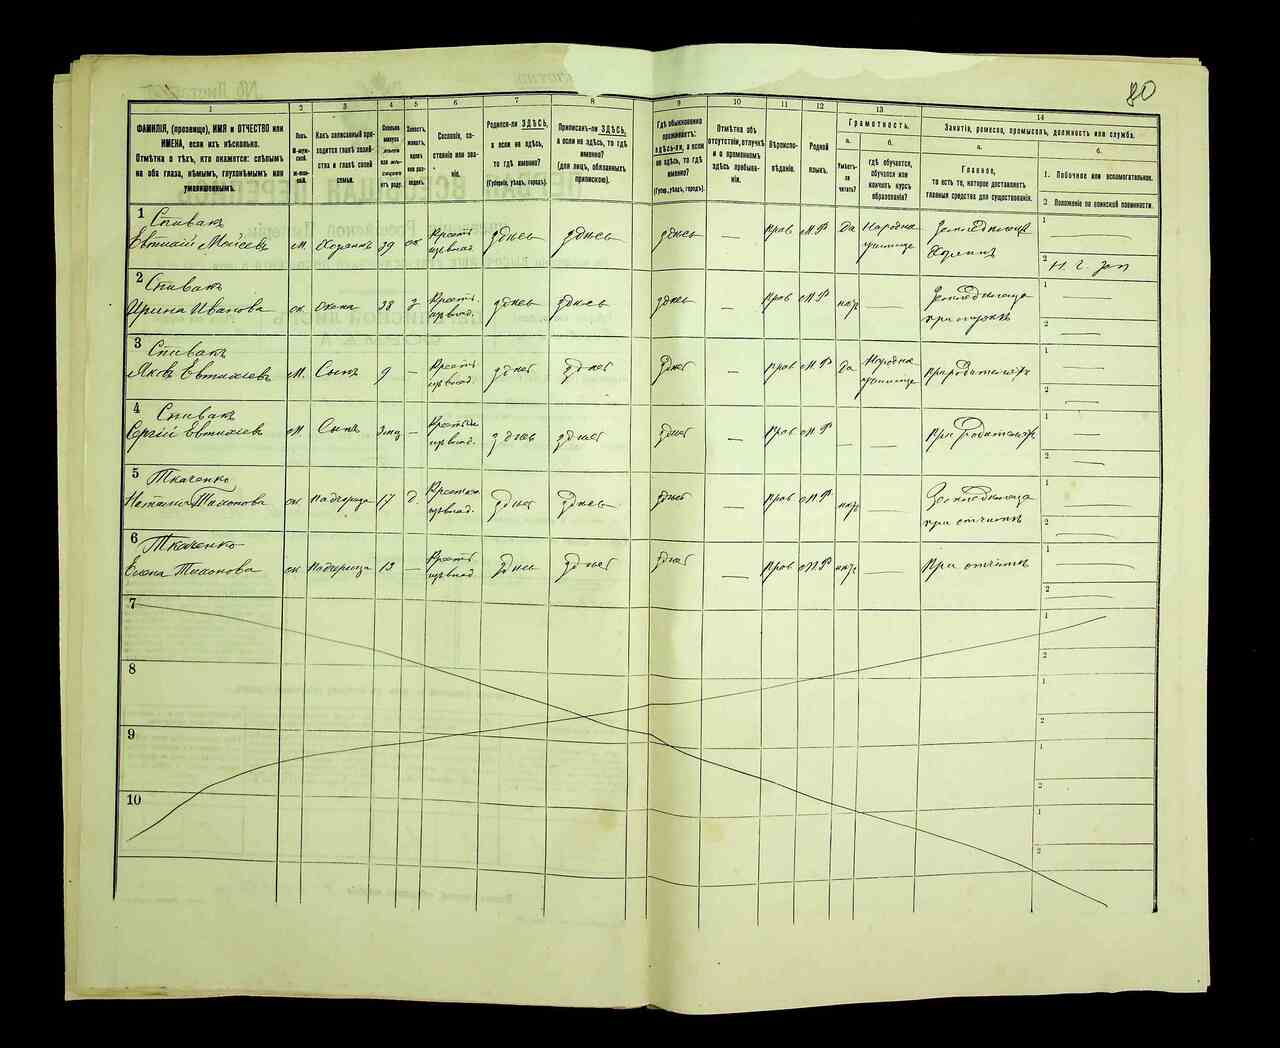 80
1 2 3 4 5 6 7 8 9 10 11 12 13 14
ФАМИЛІЯ, (прозвище), ИМЯ и ОТЧЕСТВО или
ИМЕНА, если ихъ нѣсколько.
Отмѣтка о тѣхъ, кто окажется: слѣпымъ
на оба глаза, нѣмымъ, глухонѣмымъ или
умалишеннымъ.
Полъ.
М-муж-
ской.
Ж-жен-
скій.
Какъ записанный при-
ходится главѣ хозяй-
ства и главѣ своей
семьи.
Сколько
минуло
лѣтъ
или мѣ-
сяцевъ
отъ роду.
Холостъ,
женатъ,
вдовъ
или раз-
веденъ.
Сословіе, со-
стояніе или зва-
ніе.
Родился-ли ЗДѢСЬ,
а если не здѣсь,
то гдѣ именно?
(Губернія, уѣздъ, городъ).
Приписанъ-ли ЗДѢСЬ,
а если не здѣсь, то гдѣ
именно?
(для лицъ, обязанныхъ
припискою).
Гдѣ обыкновенно
проживаетъ:
здѣсь-ли, а если
не здѣсь, то гдѣ
именно?
(Губер., уѣздъ, городъ).
Отмѣтка объ
отсутствіи, отлучкѣ
и о временномъ
здѣсь пребыва-
ніи.
Вѣроиспо-
вѣданіе.
Родной
языкъ.
Грамотность.
а.
Умѣетъ-
ли
читать?
б.
гдѣ обучается,
обучался или
кончилъ курсъ
образованія?
Занятіе, ремесло, промыселъ, должность или служба.
а.
Главное,
то есть то, которое доставляетъ
главныя средства для существованія.
б.
1. Побочное или вспомогательное.
2. Положеніе по воинской повинности.
1 Спивакъ
Евтихій Моисеевъ м. Хозяинъ 39 ж Крестъ. изъ влад. здѣсь здѣсь здѣсь — Прав М.Р Да Народна училище Земледѣлецъ Хозяинъ 1 —
2 Н. г. зап
2 Спивакъ
Ирина Иванова ж. Жена 38 з Крестъ. изъ влад. здѣсь здѣсь здѣсь — Прав М.Р нѣтъ — Земледѣлица при мужѣ 1 —
2 —
3 Спивакъ
Яковъ Евтихіевъ М. Сынъ 9 — Крестъ изъ влад. здѣсь здѣсь здѣсь — Прав М.Р Да Народна училище При родителяхъ 1 —
2 —
4 Спивакъ
Сергій Евтихіевъ М. Сынъ 3 мц — Крестъ изъ влад. здѣсь здѣсь здѣсь — Прав М.Р — — При родителяхъ 1 —
2 —
5 Ткаченко
Наталия Тихонова ж. Падчерица 17 д. Крестъ изъ влад. здѣсь здѣсь здѣсь — Прав М.Р нѣтъ — Земледѣлица при отчимѣ 1 —
2 —
6 Ткаченко
Елена Тихонова ж Падчерица 13 — Крестъ изъ влад. здѣсь здѣсь здѣсь — Прав М.Р нѣтъ — При отчимѣ 1 —
2 —
7 1
2
8 1
2
9 1
2
10 1
2